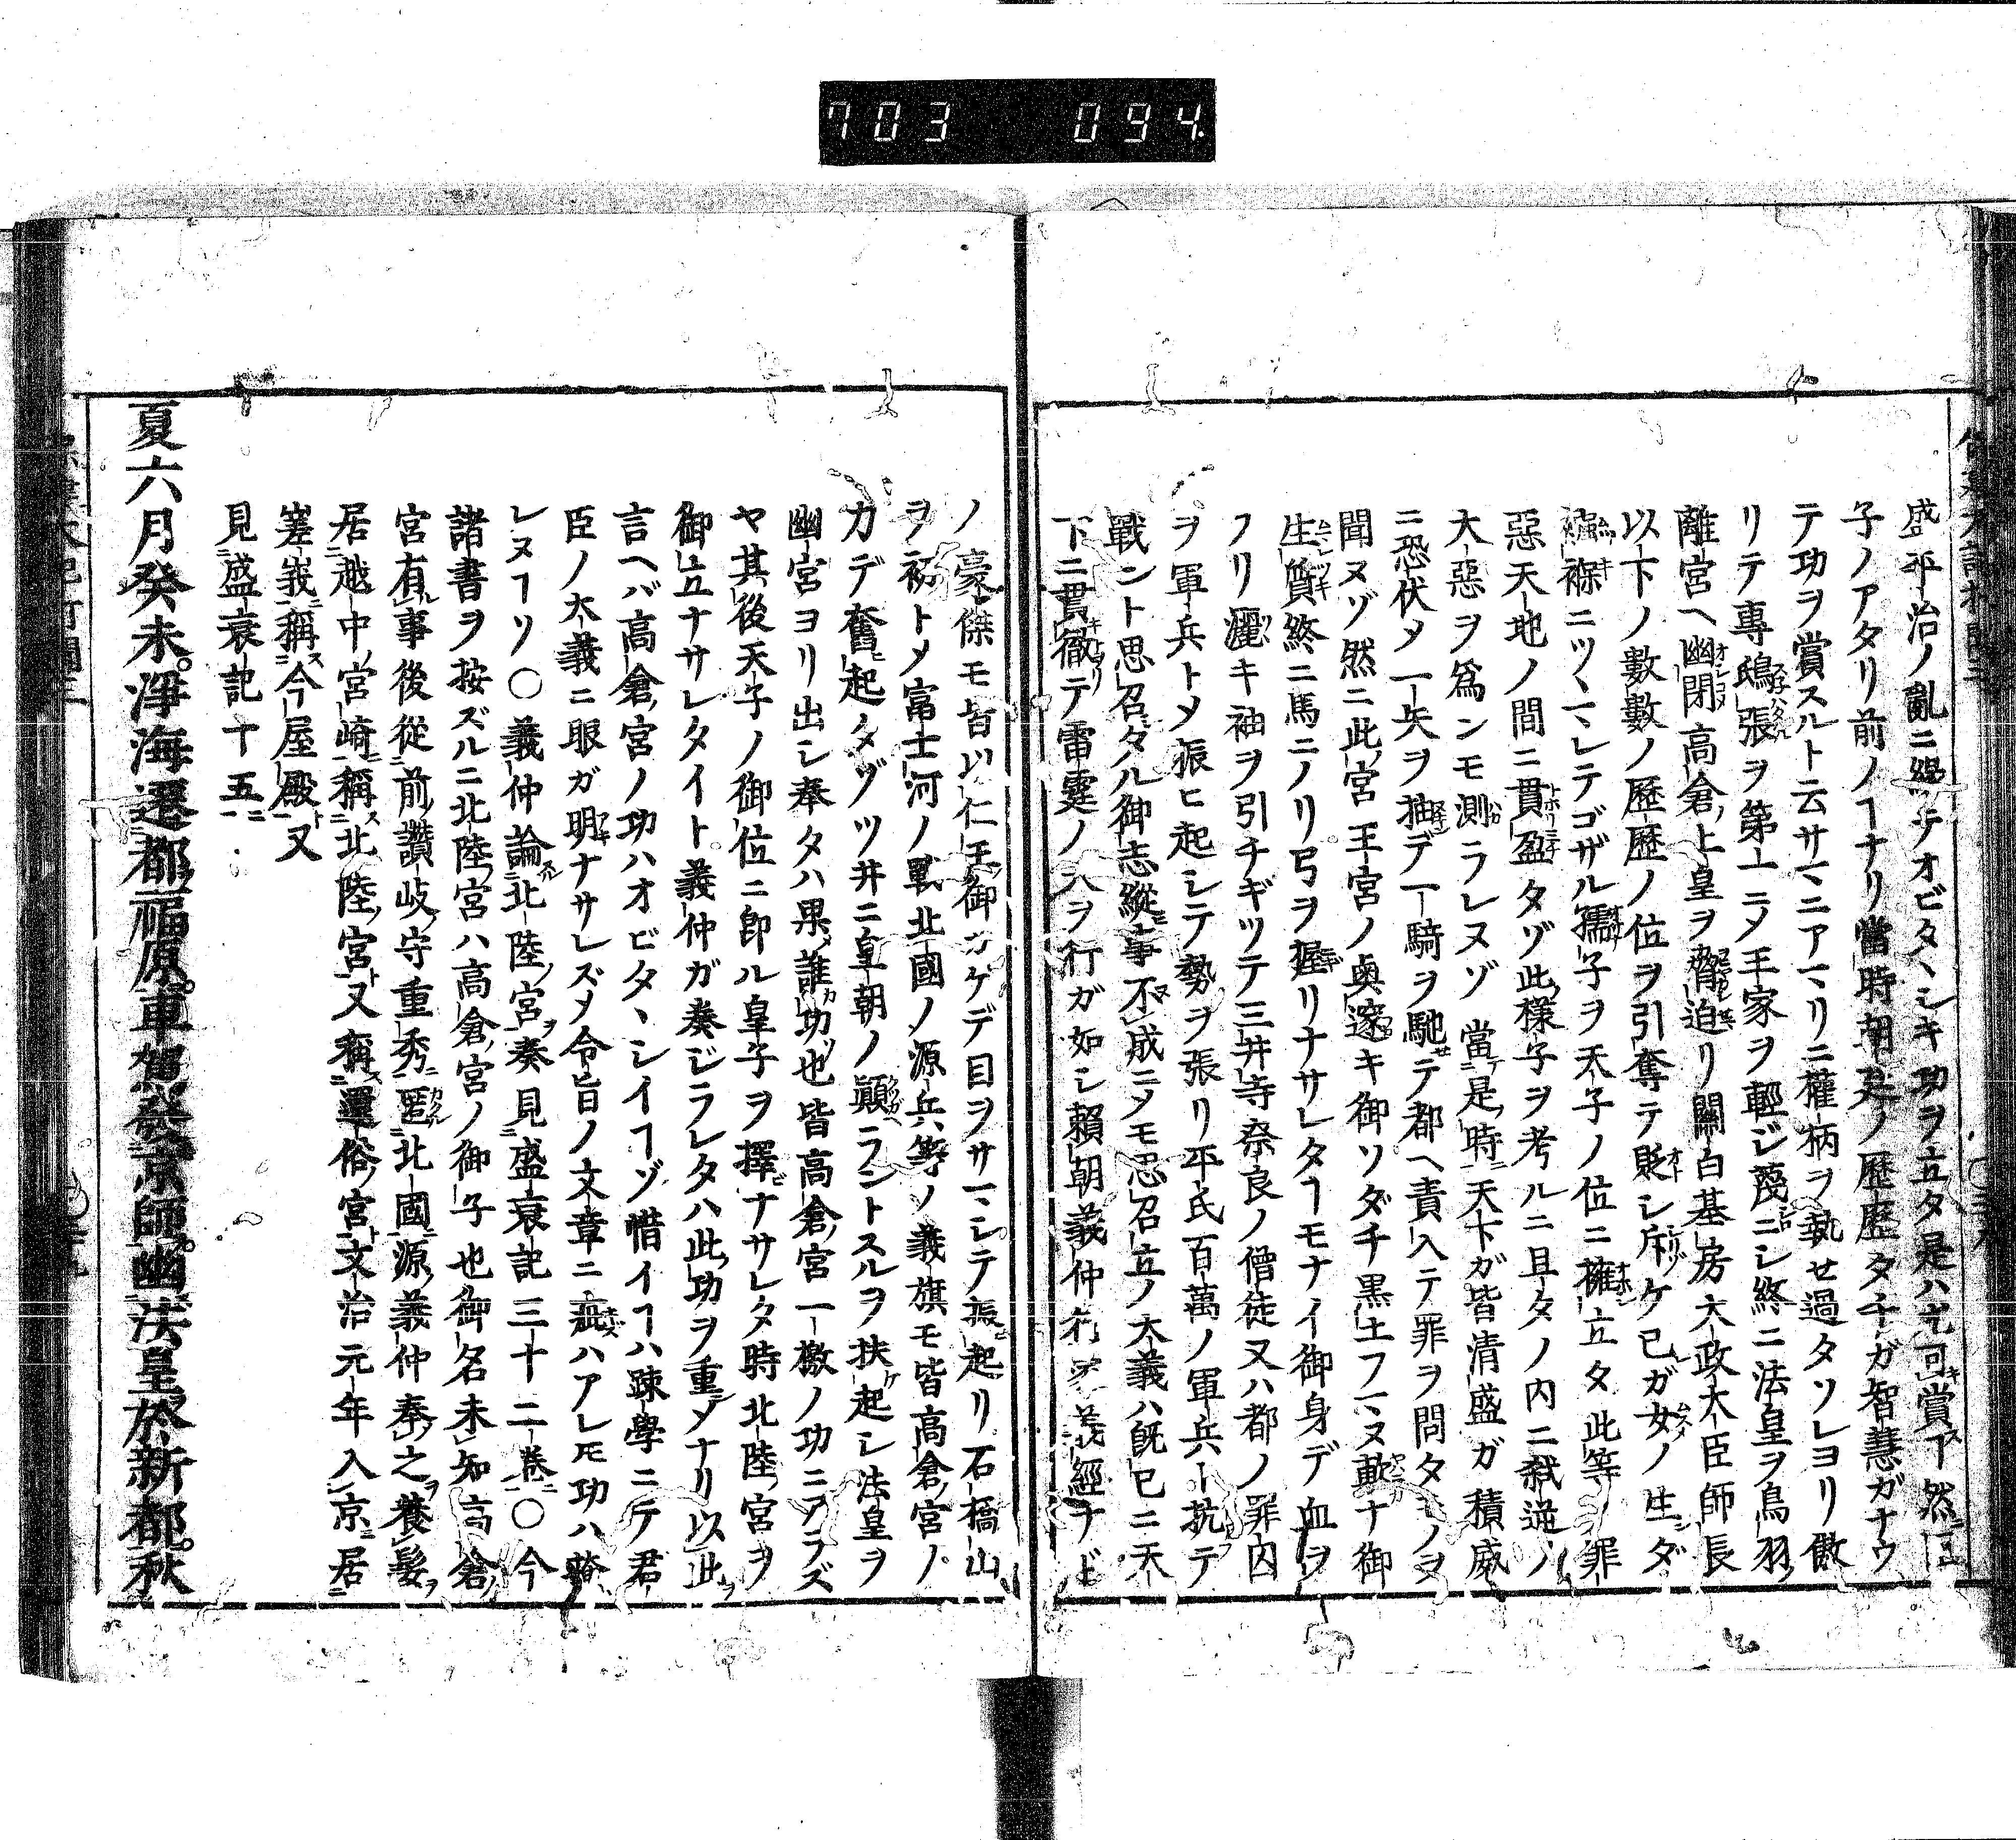 703 094
盛平治ノ亂ニ緝テオビタヽシキ功ヲ立タ是ハ尤可賞下然
子ノアタリ前ノヿナリ當時朝廷ノ歷歷タチガ智慧ガナウ
テ功ヲ賞スルト云サマニアマリニ權柄ヲ執セ過タソレヨリ傲
リテ專鴟張ヲ第一ニメ王家ヲ輕ジ蔑ニシ終ニ法皇ヲ鳥羽
離宮ヘ幽閉高倉上皇ヲ脅迫リ關白基房太政大臣師長
以下ノ數數ノ歷歷ノ位ヲ引奪テ貶シ斥ケ已ガ女ノ生ダ
襁褓ニツヽマレテゴザル孺子ヲ天子ノ位ニ擁立タ此等ノ罪
惡天地ノ間ニ貫盈タゾ此樣子ヲ考ルニ且タノ内ニ弑逆ノ
大惡ヲ爲ンモ測ラレヌゾ當是時天下ガ皆清盛ガ積威
ニ恐伏メ一矢ヲ抽デ一騎ヲ馳テ都ヘ責入テ罪ヲ問タモノヲ
聞ヌゾ然ニ此宮王宮ノ奥邃キ御ソダチ黒土フマヌ斬ナ御
生質終ニ馬ニノリ弓ヲ握リナサレタヿモナイ御身デ血ヲ
フリ灑キ袖ヲ引チギツテ三井寺奈良ノ僧徒又ハ都ノ罪囚
ヲ軍兵トメ振ヒ起シテ勢ヲ張リ平氏百萬ノ軍兵ト抗テ
戰ント思召タル御志縱事不成ニメモ思召立ノ大義ハ旣已ニ天
下ニ貫徹テ雷霆ノ八ヲ行ガ如シ賴朝義仲行家義經ナド
ノ豪傑モ皆以仁王御カゲデ目ヲサマシテ振起リ石橋山
ヲ初トメ富士河ノ戰北國ノ源兵等ノ義旗モ皆高倉宮ノ
カデ奮起タゾツ井ニ皇朝ノ顚ラントスルヲ扶起シ法皇ヲ
幽宮ヨリ出シ奉タハ果誰功也皆高倉宮一檄ノ功ニアラズ
ヤ其後天子ノ御位ニ卽ル皇子ヲ擇ナサレタ時北陸宮ヲ
御立ナサレタイト義仲ガ奏ジラレタハ此功ヲ重メナリ以此
言ヘバ高倉宮ノ功ハオビタヽシイヿゾ惜イヿハ疎學ニテ君
臣ノ大義ニ眼ガ明ナサレズメ令旨ノ文章ニ疵ハアレ𪜈功ハ揜
レヌヿソ○義仲論北陸宮奏見盛衰記三十二卷○今
諸書ヲ按ズルニ北陸宮ハ高倉宮ノ御子也御名未知高倉
宮有事後從前讚岐守重秀匿北國源義仲奉之養髮
居越中宮崎稱北陸宮又稱還俗宮文治元年入京居
嵳峩稱今屋殿又
見盛衰記十五
夏六月癸未淨海遷都福原車駕發京師幽法皇於新都秋